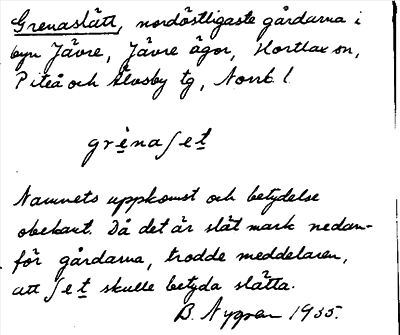 Grenaslätt, nordöstligaste gårdarna i
byn Jävre, Jävre ägor, Hortlax sn,
Piteå och Älvsby tg, Norrb. l.
grènaʃet
Namnets uppkomst och betydelse
obekant. Då det är slät mark nedan-
för gårdarna, trodde meddelaren,
att ʃet skulle betyda slätta.
B. Nygren 1935.